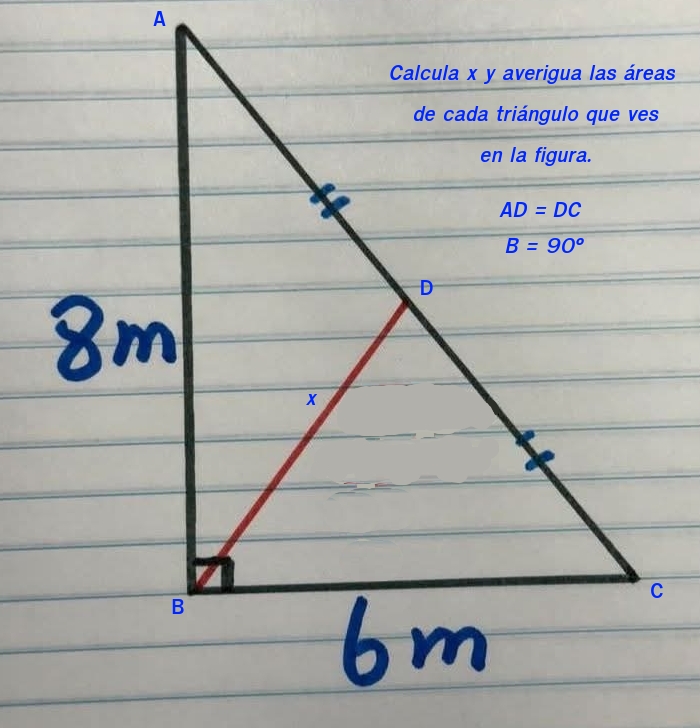 A
Calcula x y averigua las áreas
de cada triángulo que ves
en la figura.
AD = DC
B = 90º
D
8m
x
B
C
6m